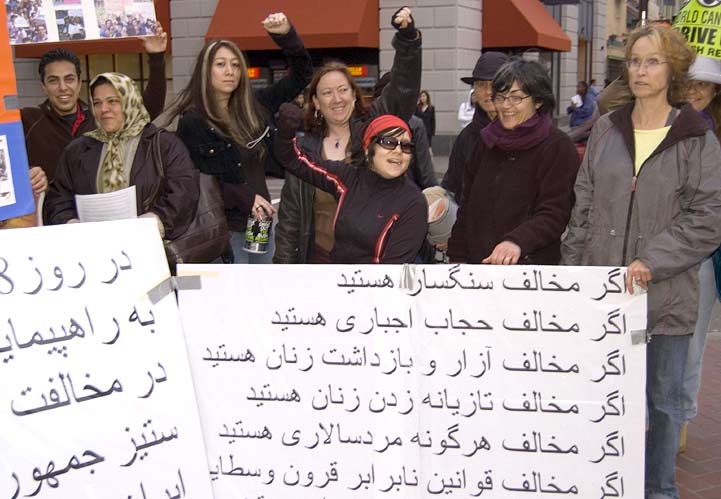 ORLD CAN
DRIVE
REGI
در روز 8
به راهپیمای
در مخالفت
ستیز جمهور
ایران
اگر مخالف سنگسار هستید
اگر مخالف حجاب اجباری هستید
اگر مخالف آزار و بازداشت زنان هستید
اگر مخالف تازیانه زدن زنان هستید
اگر مخالف هرگونه مردسالاری هستید
اگر مخالف قوانین نابرابر قرون وسطای